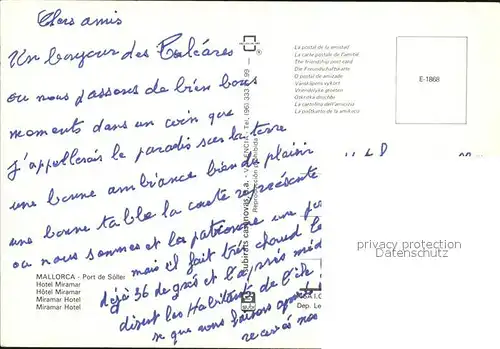 Chers amis
Un bonjour des Baléares
ou nous passons de bien bons
moments dans un coin que
j'appellerais le paradis sur la terre
une bonne ambiance bien du plaisir
une bonne table la carte représente
ou nous sommes et la patronne une
mais il fait très chaud le
déjà 36 de gres et l'après mid
disent les Habitants de l'île
se que nous faisons
recevés nos
MALLORCA - Port de Sóller
Hotel Miramar
Hôtel Miramar
Miramar Hotel
Miramar Hotel
subirats casanovas, s.a. - VALENCIA - Tel. (96) 333 99
Reproducción prohibida
La postal de la amistad
La carte postale de l'amitié
The friendship post card
Die Freundschaftskarte
O postal de amizade
Vänskapens vykort
Vriendelijke groeten
La cartolina dell'amicizia
La postkarto de la amikeco
E-1868
privacy protection
Datenschutz
Dep. Le